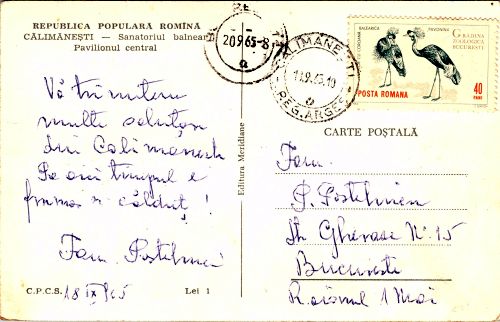 REPUBLICA POPULARA ROMÎNA
CĂLIMĂNEȘTI — Sanatoriul balnear
Pavilionul central
Vă trimitem
multe salutări
din Călimănești
Pe aici timpul e
frumos și călduț !
Fam. Postelnicu
C.P.C.S. 18 IX 965 Lei 1
Editura Meridiane
20.9.65-8
CĂLIMĂNEȘTI
REG. ARGEȘ
BALEARICA PAVONINA
GRĂDINA
ZOOLOGICĂ
BUCUREȘTI
POSTA ROMANA
40
BANI
CARTE POȘTALĂ
Fam.
P. Postelnicu
Str Gherase Nº 15
București
Raionul 1 Mai